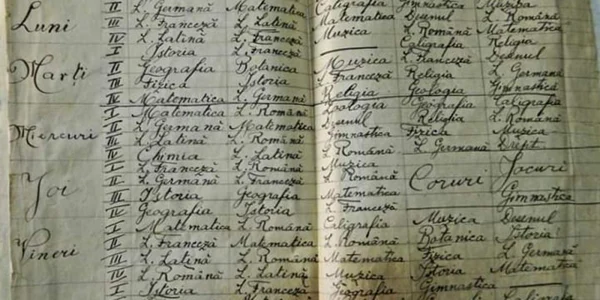 II L. Germană Matematica Caligrafia Gimnastica Muzica
Luni III L. Franceză L. Latină Matematica Desenul L. Română
IV L. Latină L. Franceză Muzica L. Română Matematica
I Istoria L. Franceză Caligrafia Religia
Marți II Geografia Botanica Muzica L. Franceză Desenul
III Fizica Istoria L. Franceză Religia L. Germană
IV Matematica L. Germană Religia Geologia Gimnastica
I Matematica L. Română Zoologia Geografia Caligrafia
Mercuri II L. Germană Matematica Desenul Religia L. Română
III L. Latină L. Română Gimnastica Fizica Muzica
IV Chimia L. Latină L. Română L. Germană Drept
I L. Franceză L. Română Muzica
Joi II L. Germană L. Franceză L. Română Coruri Jocuri
III Istoria Geografia Matematica Gimnastica
IV Geografia Istoria L. Franceză
I Matematica L. Română Caligrafia Muzica Desenul
Vineri II L. Franceză Matematica L. Română Botanica Istoria
III L. Latină L. Română Matematica Fizica L. Germană
IV L. Română L. Latină Muzica Istoria Matematica
I Istoria L. Franceză Geografia Gimnastica